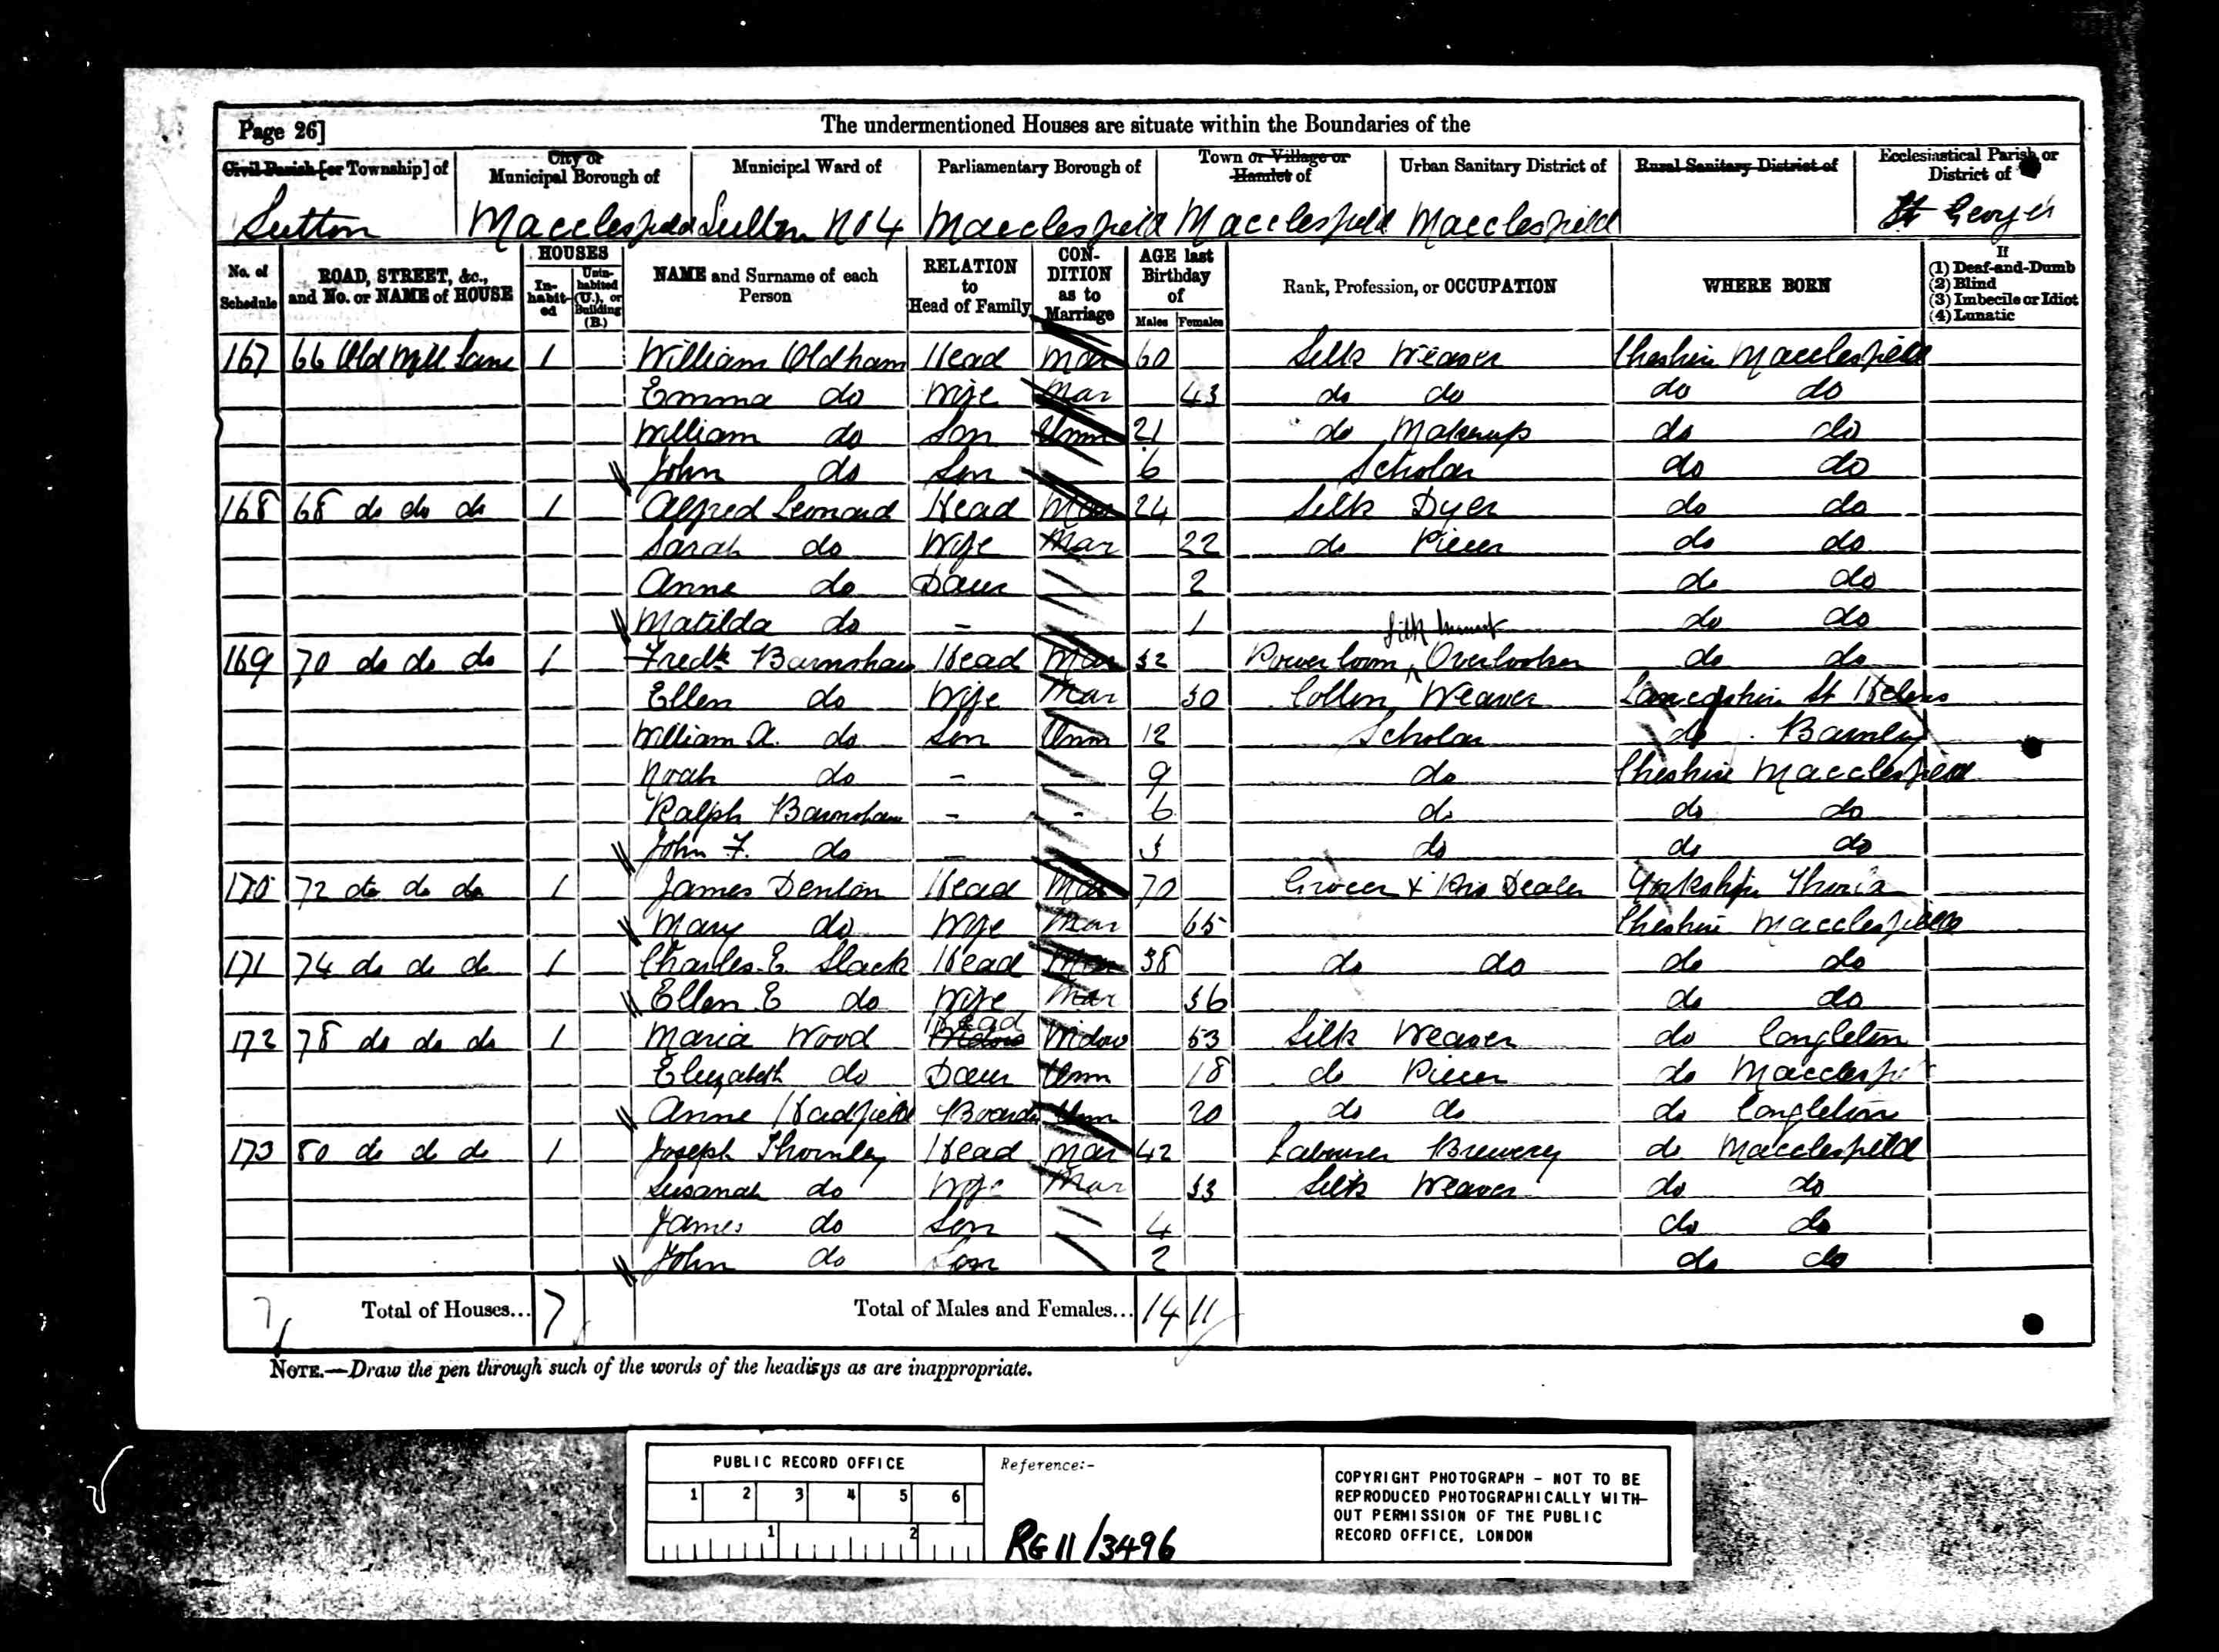 Page 26]
The undermentioned Houses are situate within the Boundaries of the
Civil Parish [or Township] of
City or Municipal Borough of
Municipal Ward of
Parliamentary Borough of
Town or Village or Hamlet of
Urban Sanitary District of
Rural Sanitary District of
Ecclesiastical Parish or District of
Sutton Macclesfield Sutton No 4 Macclesfield Macclesfield Macclesfield St George's
No. of Schedule
ROAD, STREET, &c., and No. or NAME of HOUSE
HOUSES
In-habit-ed
Unin-habited (U.), or Building (B.)
NAME and Surname of each Person
RELATION to Head of Family
CON-DITION as to Marriage
AGE last Birthday of
Males Females
Rank, Profession, or OCCUPATION
WHERE BORN
If
(1) Deaf-and-Dumb
(2) Blind
(3) Imbecile or Idiot
(4) Lunatic
167 66 Old Mill Lane 1 William Oldham Head Mar 60 Silk Weaver Cheshire Macclesfield
Emma do Wife Mar 43 do do do do
William do Son Unm 21 do Makerup do do
John do Son 6 Scholar do do
168 68 do do do 1 Alfred Leonard Head Mar 24 Silk Dyer do do
Sarah do Wife Mar 22 do Piecer do do
Anne do Daur 2 do do
Matilda do - 1 do do
169 70 do do do 1 Fredk Barnshaw Head Mar 32 Power loom Silk Overlooker do do
Ellen do Wife Mar 30 Cotton Weaver Lancashire St Helens
William A. do Son Unm 12 Scholar do
Noah do - - 9 do Cheshire Macclesfield
Ralph Barnshaw - - 6 do do do
John F. do - 3 do do do
170 72 do do do 1 James Denton Head Mar 70 Grocer & Dealer Yorkshire
Mary do Wife Mar 65 Cheshire Macclesfield
171 74 do do do 1 Charles E. Slack Head Mar 38 do do do do
Ellen E do Wife Mar 36 do do
172 78 do do do 1 Maria Wood Head Widow 53 Silk Weaver do Congleton
Elizabeth do Daur Unm 18 do Piecer do Macclesfie
Anne Hadfield Boarder Unm 20 do do do Congleton
173 80 do do do 1 Joseph Thornley Head Mar 42 Labourer Brewery do Macclesfield
Susanah do Wife Mar 33 Silk Weaver do do
James do Son 4 do do
John do Son 2 do do
Total of Houses... 7 Total of Males and Females... 14 11
NOTE.—Draw the pen through such of the words of the headings as are inappropriate.
PUBLIC RECORD OFFICE
1 2 3 4 5 6
1 2
Reference:-
RG 11/3496
COPYRIGHT PHOTOGRAPH - NOT TO BE
REPRODUCED PHOTOGRAPHICALLY WITH-
OUT PERMISSION OF THE PUBLIC
RECORD OFFICE, LONDON